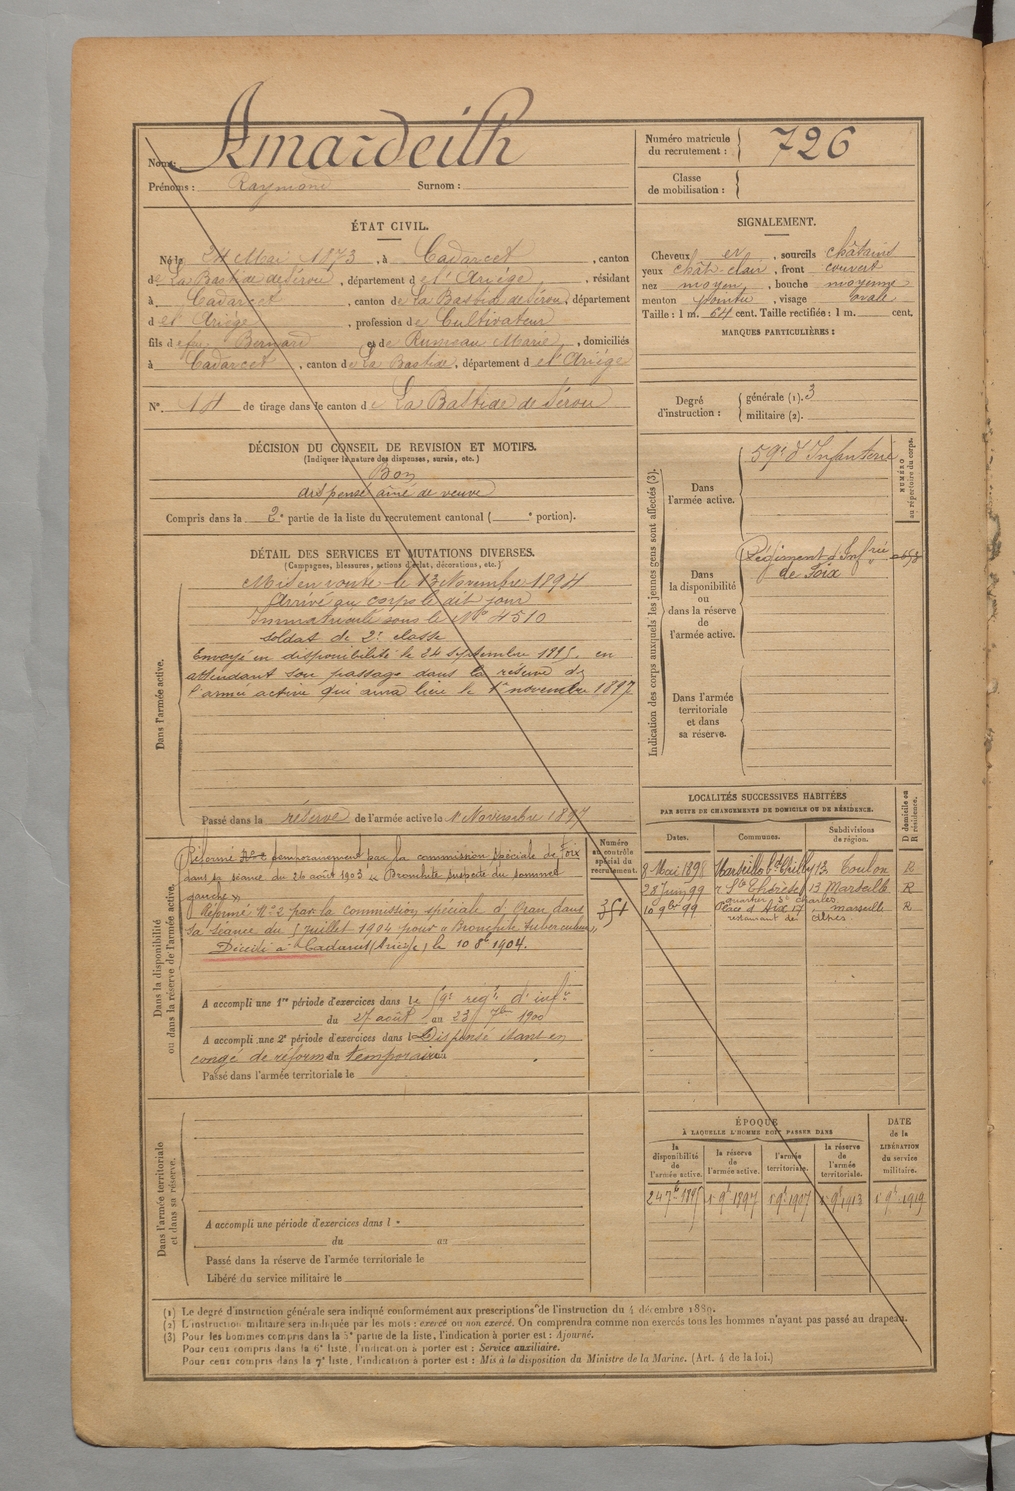 Nom: Amardeilh
Prénoms: Raymond Surnom:
Numéro matricule du recrutement: 726
Classe de mobilisation:
ÉTAT CIVIL.
Né le 24 Mai 1873, à Cadarcet, canton
de La Bastide de Sérou, département de l'Ariège, résidant
à Cadarcet, canton de La Bastide de Sérou, département
de l'Ariège, profession de Cultivateur
fils de fu Bernard et de Rumeau Marie, domiciliés
à Cadarcet, canton de La Bastide, département de l'Ariége
N° 14 de tirage dans le canton de La Bastide de Sérou
SIGNALEMENT.
Cheveux et, sourcils châtains
yeux chât-clair, front couvert
nez moyen, bouche moyenne
menton pointu, visage ovale
Taille: 1 m. 64 cent. Taille rectifiée: 1 m. cent.
MARQUES PARTICULIÈRES:
Degré d'instruction:
générale (1). 3
militaire (2).
DÉCISION DU CONSEIL DE REVISION ET MOTIFS.
(Indiquer la nature des dispenses, sursis, etc.)
Bon
dispensé aîné de veuve
Compris dans la 2e partie de la liste du recrutement cantonal ( e portion).
DÉTAIL DES SERVICES ET MUTATIONS DIVERSES.
(Campagnes, blessures, actions d'éclat, décorations, etc.)
Dans l'armée active.
Mis en route le 13 Novembre 1894
Arrivé au corps le dit jour
Immatriculé sous le No 4510
Soldat de 2e classe
Envoyé en disponibilité le 24 septembre 1895. en
attendant son passage dans la réserve de
l'armée active qui aura lieu le 1er novembre 1897
Passé dans la réserve de l'armée active le 1 Novembre 1897
Indication des corps auxquels les jeunes gens sont affectés (3).
NUMÉRO au répertoire du corps.
Dans l'armée active.
59e d'Infanterie
Dans la disponibilité ou dans la réserve de l'armée active.
Régiment d'Infrie
de Foix
Dans l'armée territoriale et dans sa réserve.
Dans la disponibilité ou dans la réserve de l'armée active.
Numéro au contrôle spécial du recrutement.
Réformé No 2 temporairement par la commission spéciale de Foix
dans sa séance du 26 août 1903 "Bronchite suspecte du sommet
gauche"
Réformé No 2 par la commission spéciale d'Oran dans
sa séance du 5 juillet 1904 pour "Bronchite tuberculeuse"
Décédé à Cadarcet (Ariège) le 10 8e 1904.
A accompli une 1re période d'exercices dans le 59e régt d'infie
du 27 août au 23 7bre 1900
A accompli une 2e période d'exercices dans l Dispensé étant en
congé de réforme du temporaire
Passé dans l'armée territoriale le
LOCALITÉS SUCCESSIVES HABITÉES
PAR SUITE DE CHANGEMENTS DE DOMICILE OU DE RÉSIDENCE.
Dates. Communes. Subdivisions de région. D domicile ou R résidence.
8 Mai 1898 Marseille 13 Toulon R
28 Juin 99 13 Marseille R
quartier St Charles
10 9bre 99 Place d'Aix 17 Marseille R
restaurant de
Dans l'armée territoriale et dans sa réserve.
A accompli une période d'exercices dans l
du au
Passé dans la réserve de l'armée territoriale le
Libéré du service militaire le
ÉPOQUE
À LAQUELLE L'HOMME DOIT PASSER DANS
la disponibilité de l'armée active. la réserve de l'armée active. l'armée territoriale. la réserve de l'armée territoriale. DATE de la LIBÉRATION du service militaire.
24 7e 1895 1r 9e 1897 1r 9e 1907 1r 9e 1913 1r 9e 1919
(1) Le degré d'instruction générale sera indiqué conformément aux prescriptions de l'instruction du 4 décembre 1889.
(2) L'instruction militaire sera indiquée par les mots: exercé ou non exercé. On comprendra comme non exercés tous les hommes n'ayant pas passé au drapeau.
(3) Pour les hommes compris dans la 5e partie de la liste, l'indication à porter est: Ajourné.
Pour ceux compris dans la 6e liste, l'indication à porter est: Service auxiliaire.
Pour ceux compris dans la 7e liste, l'indication à porter est: Mis à la disposition du Ministre de la Marine. (Art. 4 de la loi.)